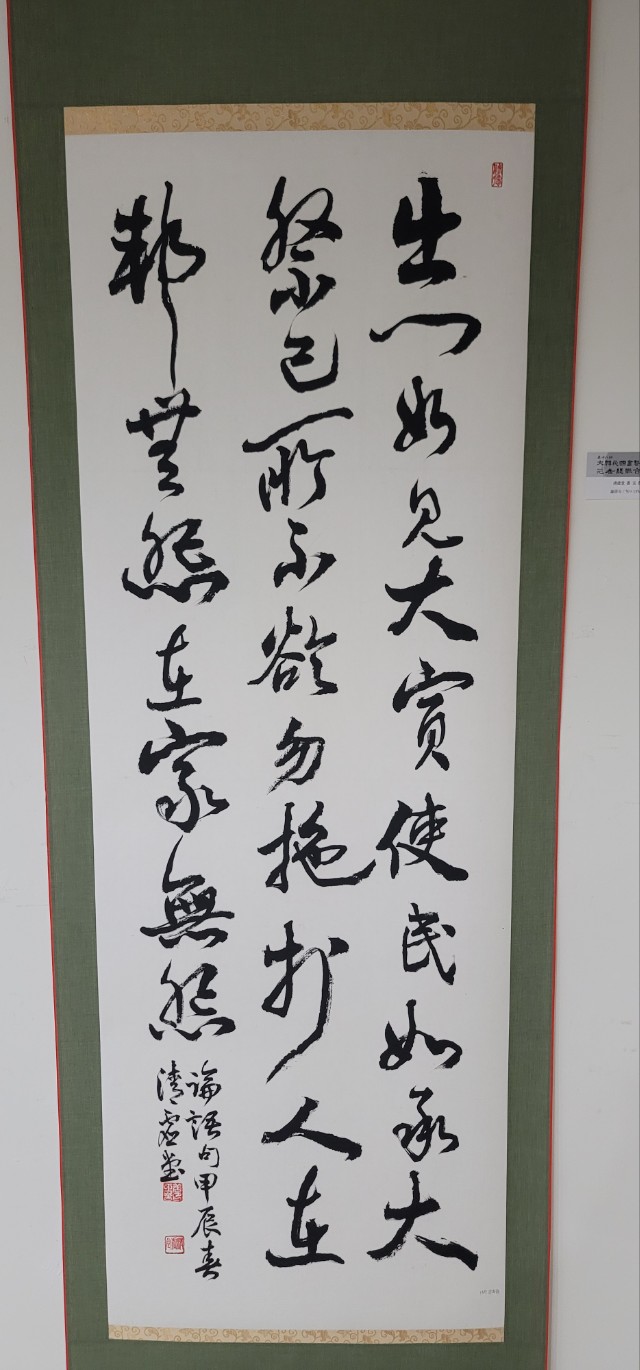 出門如見大賓使民如承大
祭己所不欲勿施於人在
邦無怨在家無怨
論語句甲辰春
清虛堂